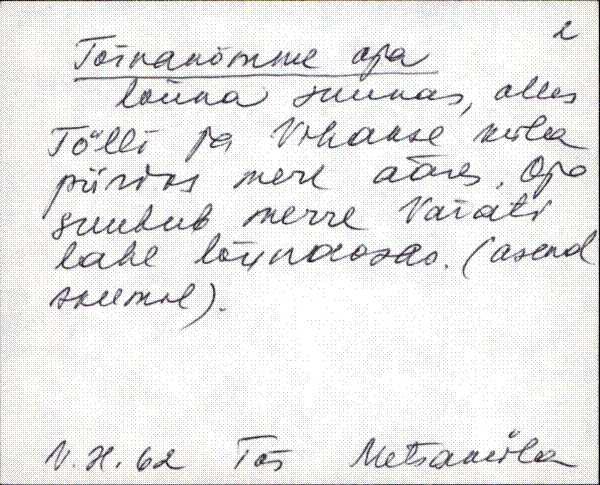 2
Toinanõmme oja
lõuna suunas, alles
Tõlli ja Vihakse küla
piirides mere ääres. Oja
suubub merre Väiati
lahe lõunaosas. (asend
skeemil).
V. H. 62 Tõs Metsaküla